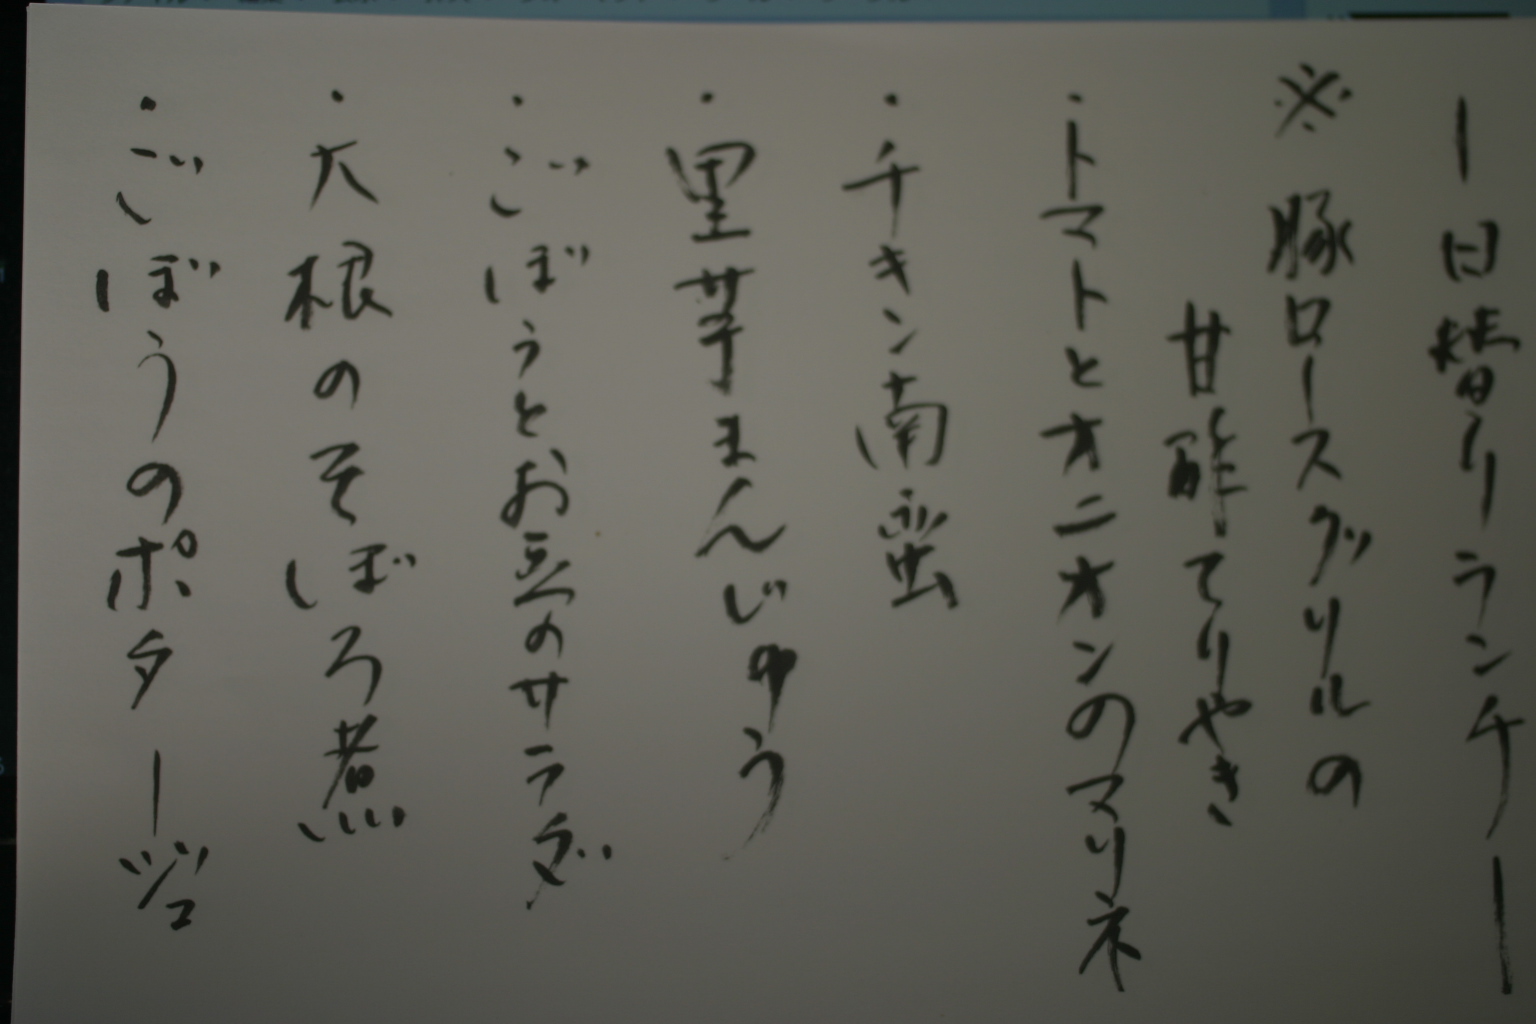 ー日替りランチー
※豚ロースグリルの
甘酢てりやき
・トマトとオニオンのマリネ
・チキン南蛮
・里芋まんじゅう
・ごぼうとお豆のサラダ
・大根のそぼろ煮
・ごぼうのポタージュ